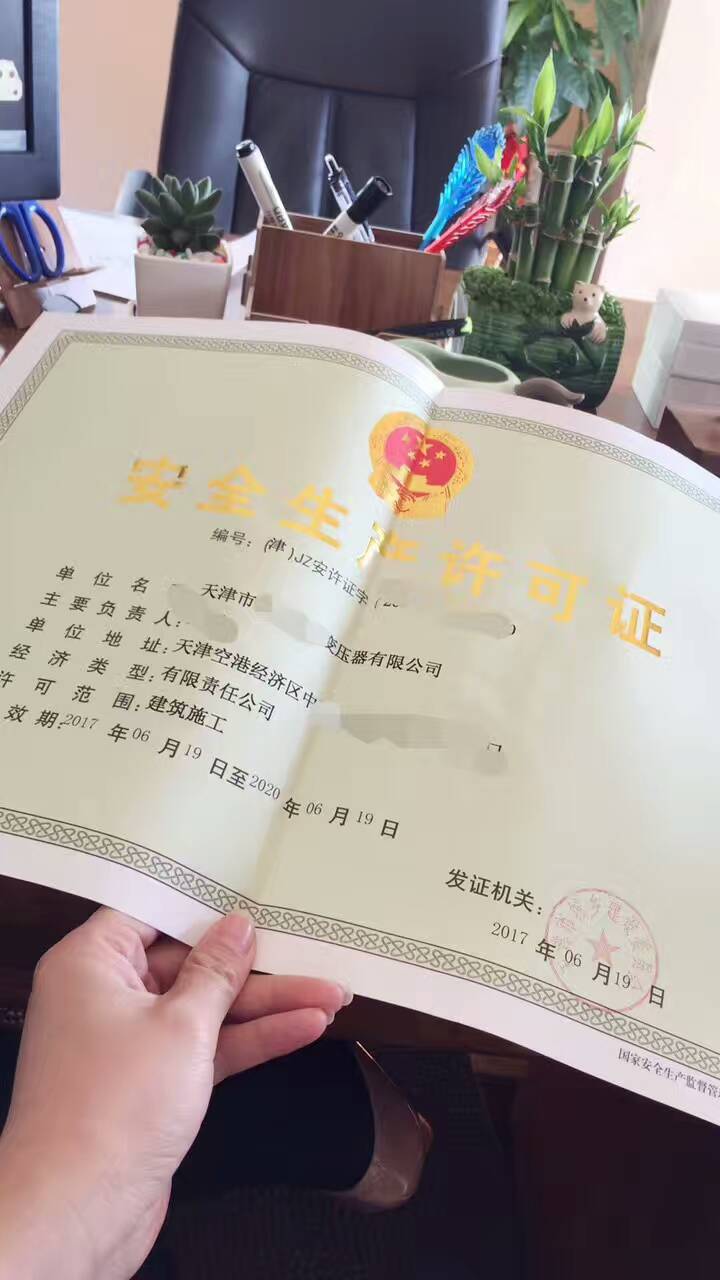 安全生产许可证
编号：(津)JZ安许证字
单位名 天津市 变压器有限公司
主要负责人：
单位地址：天津空港经济区中
经济类型：有限责任公司
许可范围：建筑施工
效期：2017年06月19日至2020年06月19日
发证机关：
2017年06月19日
国家安全生产监督管